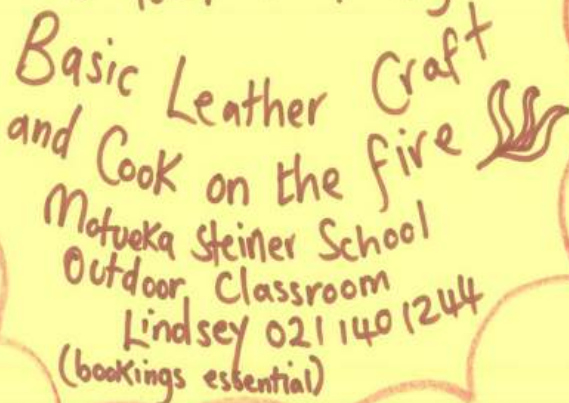 Basic Leather Craft
and Cook on the fire
Motueka Steiner School
Outdoor Classroom
Lindsey 021 140 1244
(bookings essential)